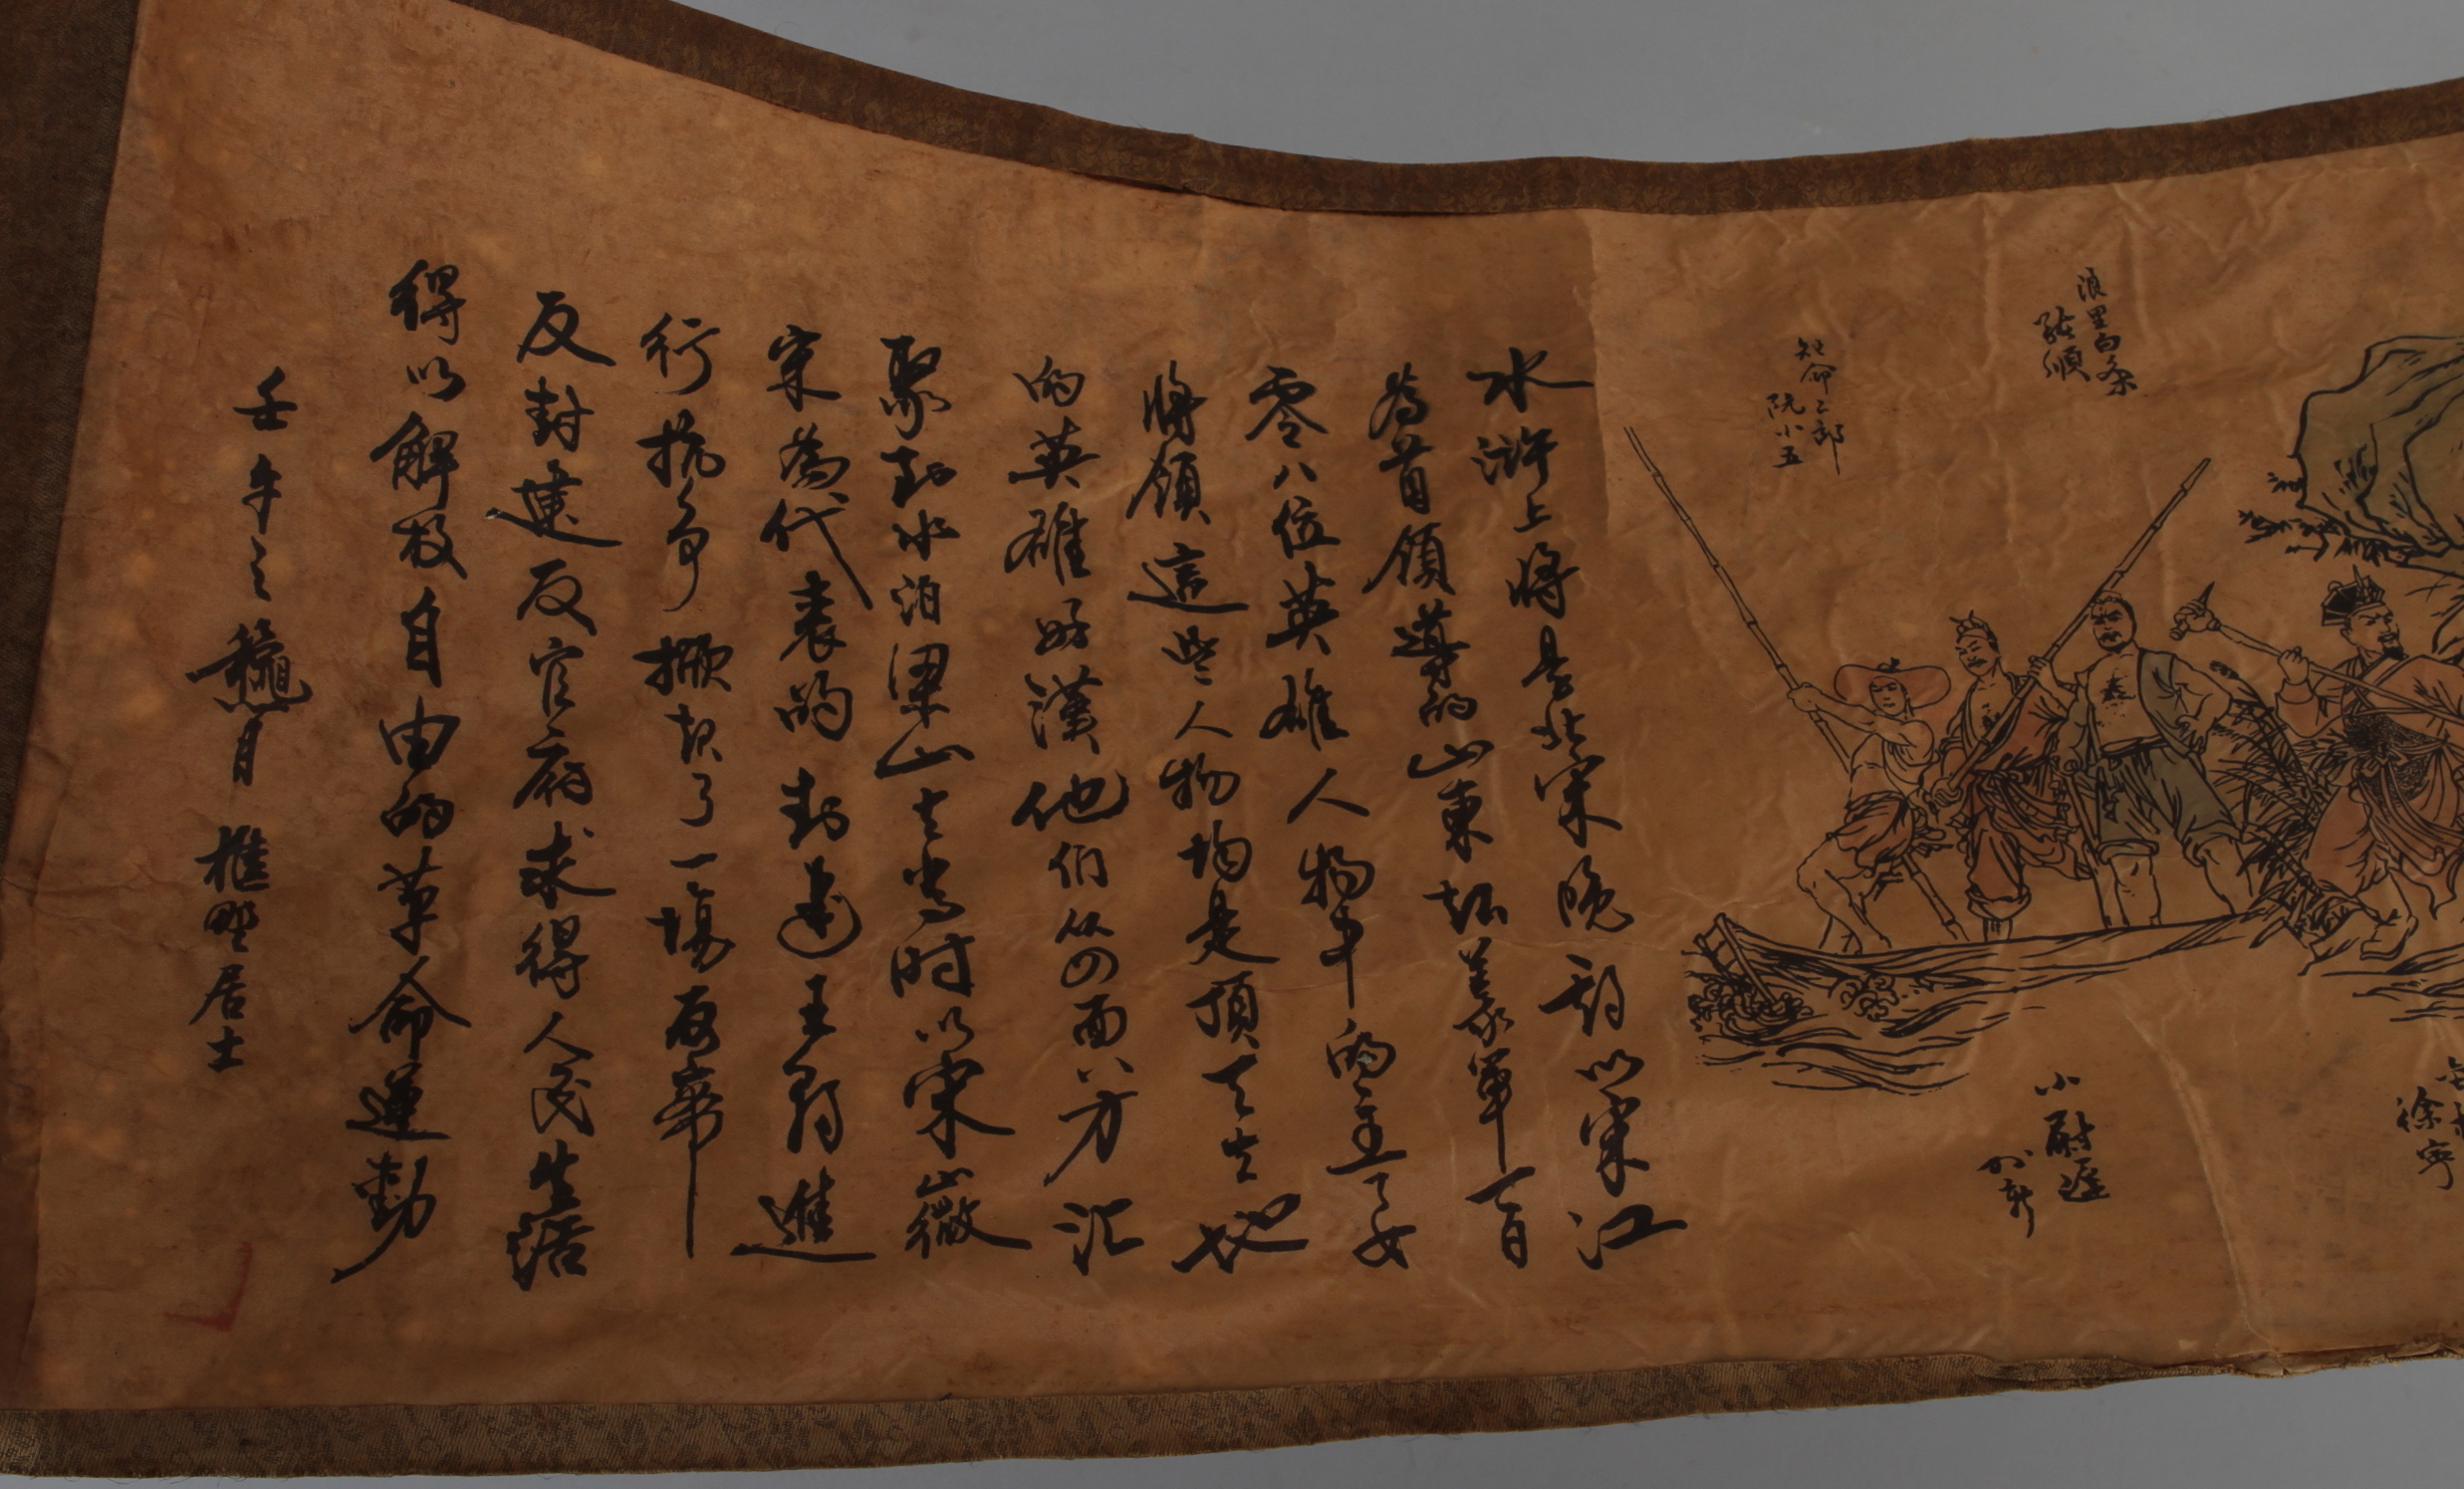 徐寧
小尉遲
孙新
浪里白条
張順
短命二郎
阮小五
水滸上將是北宋晚期以宋江
為首領導的山東起義軍一百
零八位英雄人物中的主
將領這些人物均是頂天立地
的英雄好漢他們从四面八方
聚到水泊梁山去当时以宋徽
宗為代表的封建王朝進
行抗争掀起了一場
反封建反官府求得人民生活
得以解放自由的革命運動
壬午之龝月樵野居士